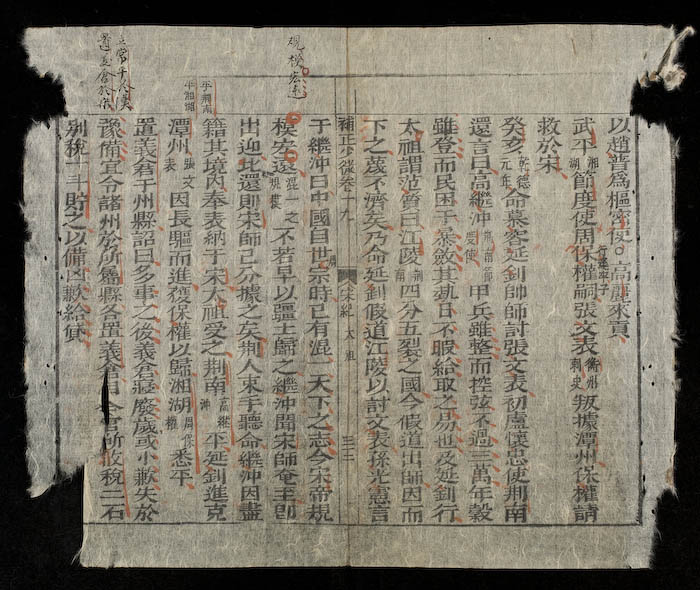 以趙普爲樞密使○高麗來貢
武平湘湖節度使周保權行逢子嗣張文表衡州刺史叛據潭州保權請
救於宋
癸亥乾德元年命慕容延釗帥師討張文表初盧懷忠使荆南
還言曰高繼沖荆南節度使甲兵雖整而控弦不過三萬年穀
雖登而民困于暴斂其勢日不暇給取之易也及延釗行
太祖謂范質曰江陵荆南四分五裂之國今假道出師因而
下之蔑不濟矣乃命延釗假道江陵以討文表孫光憲言
補正史略卷十九 宋紀 太祖 三二
規模宏遠
于繼沖曰中國自世宗周時已有混一天下之志今宋帝規
模宏遠混一之規模不若早以疆土歸之繼沖聞宋師奄至即
出迎比還則宋師已分據之矣荆人束手聽命繼沖因盡
平荆南
平湘湖
籍其境內奉表納于宋太祖受之荆南高繼沖平延釗進克
潭州張文表因長驅而進獲保權以歸湘湖周保權悉平
置義倉于州縣詔曰多事之後義倉寢廢歲或小歉失於
豫備宜令諸州於所屬縣各置義倉自今官所收稅二石
別稅一斗貯之以備凶歉給